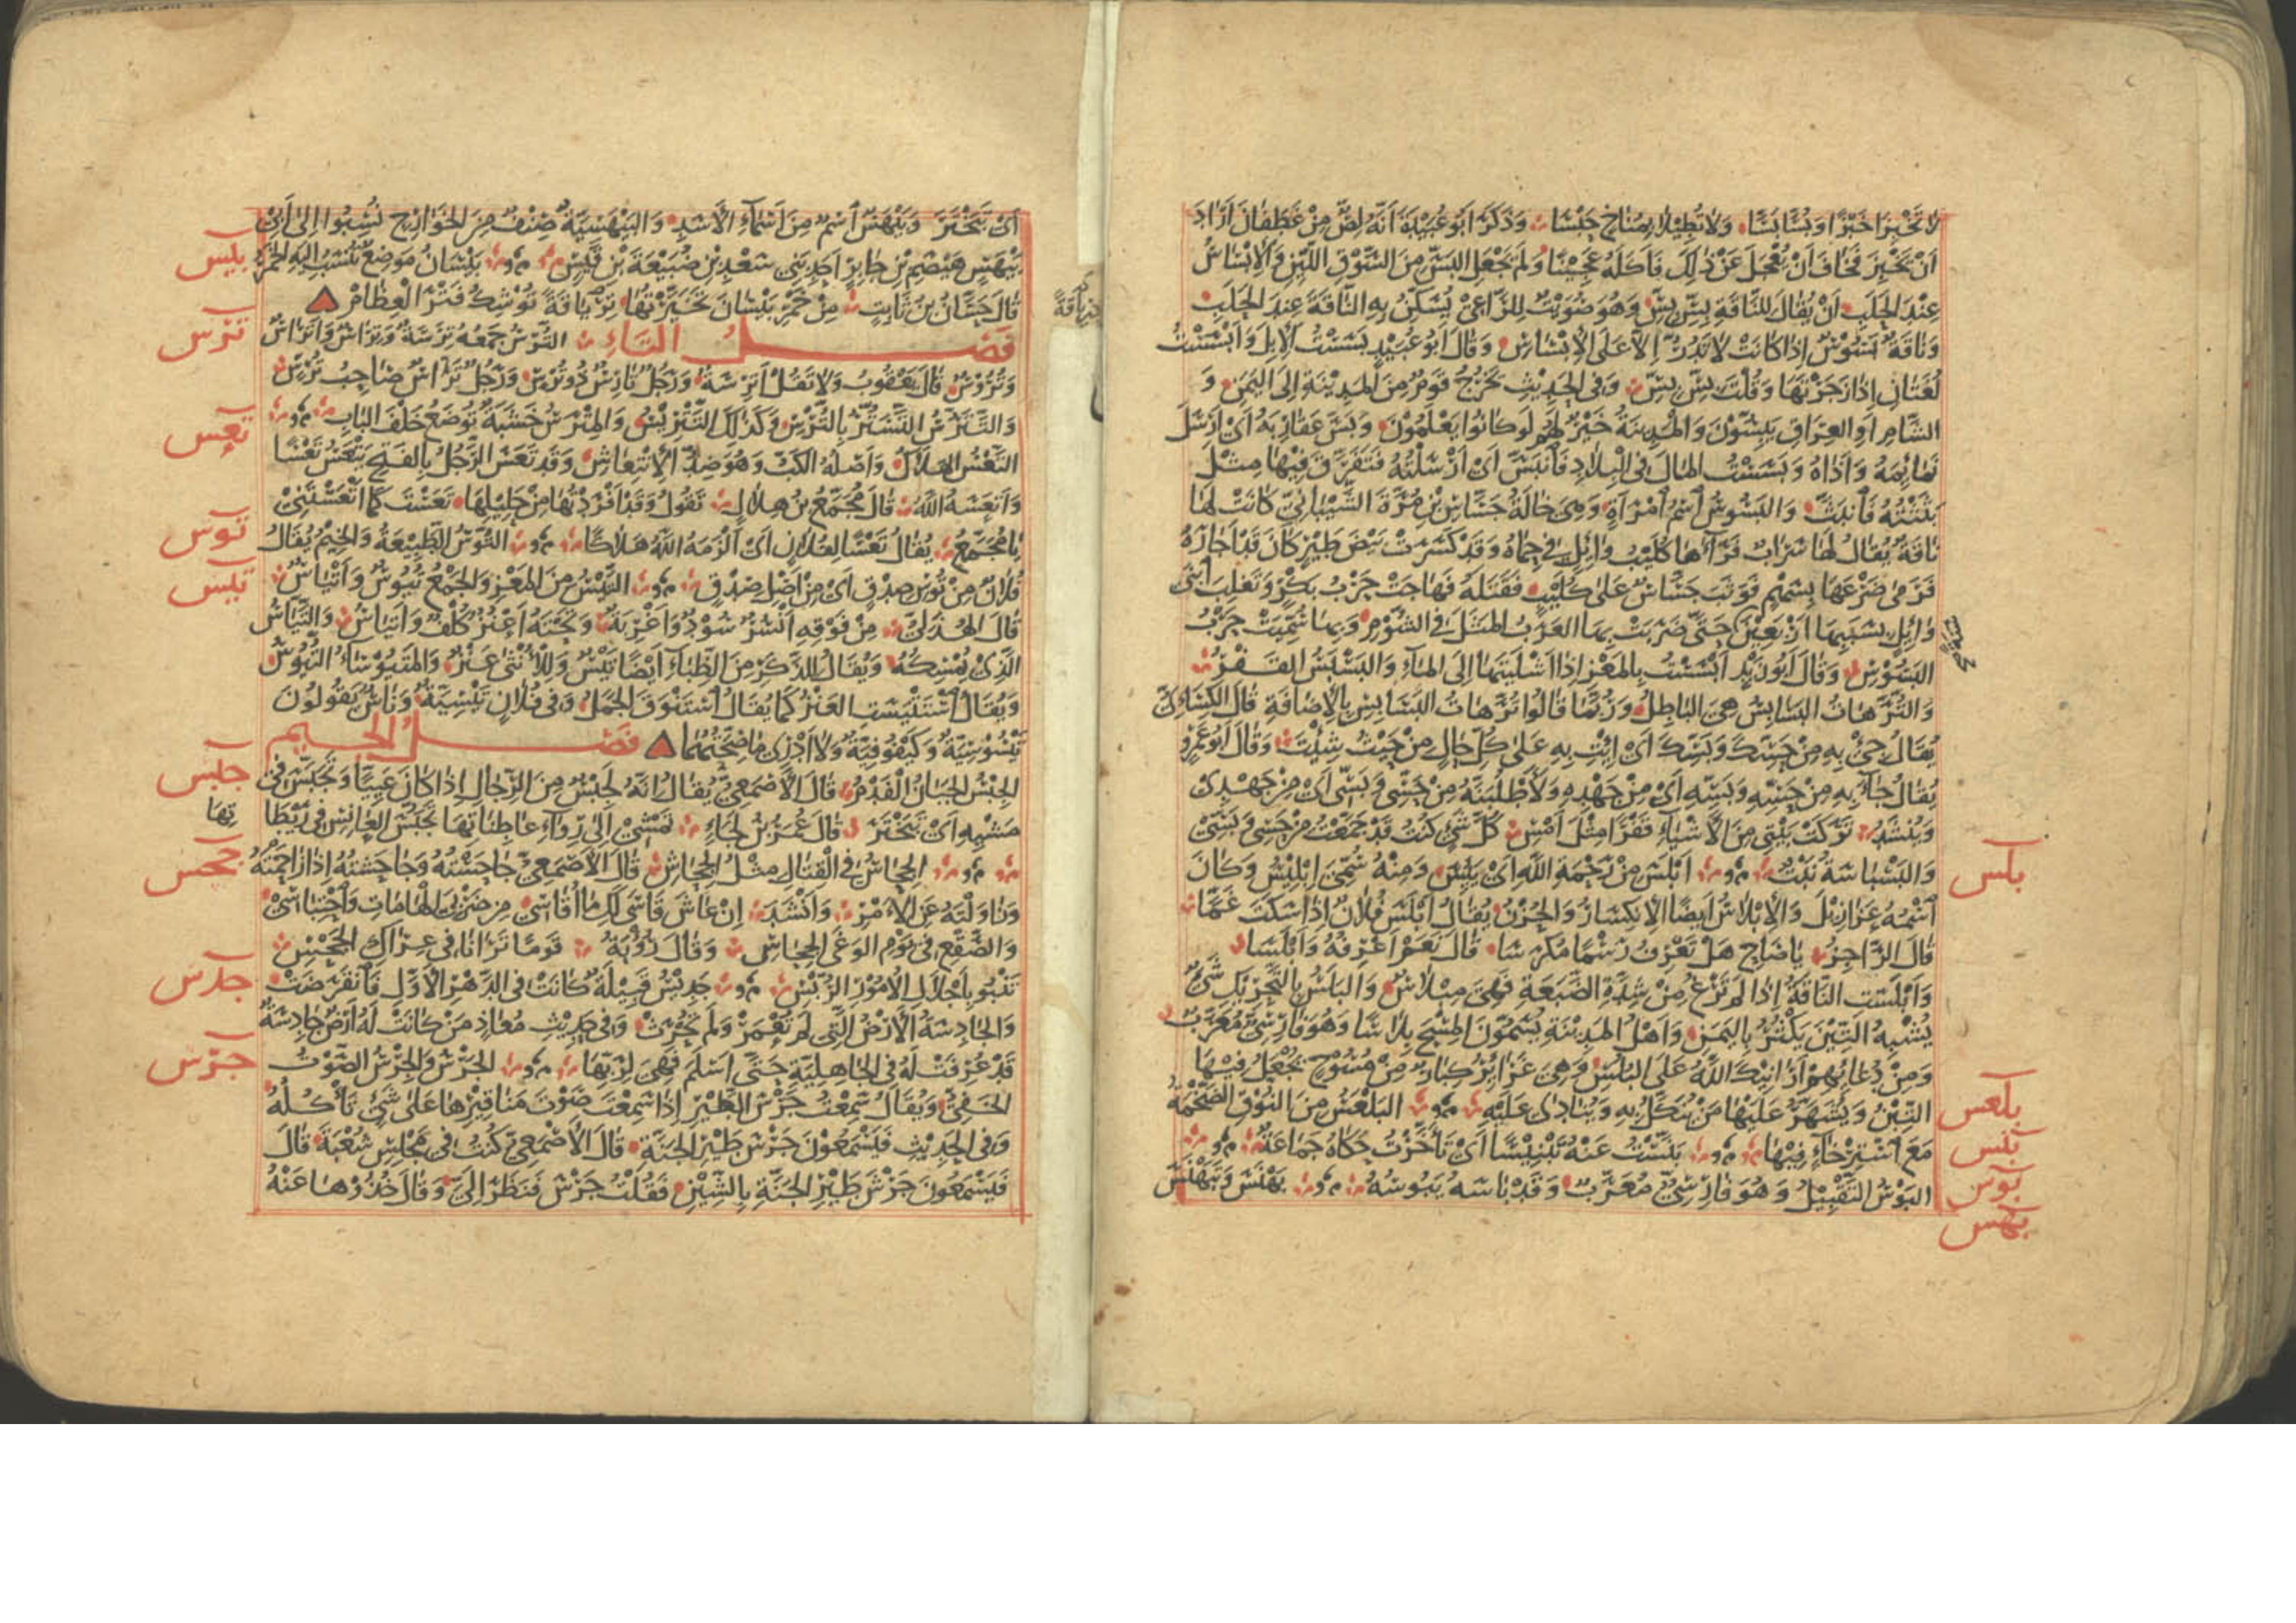 لا تَخْبِزَا خَبْزًا وَبُسَّا بَسَّا وَلا تُطِيْلا بِمُنَاخٍ حَبْسَا وَذَكَرَ أَبُو عُبَيْدَةَ أَنَّهُ لِصٌّ مِنْ غَطَفَانَ أَرَادَ
أَنْ يَخْبِزَ فَخَافَ أَنْ يُعْجَلَ عَنْ ذٰلِكَ فَأَكَلَهُ عَجِيْنًا وَلَمْ يَجْعَلِ البَسَّ مِنَ السَّوْقِ اللَّيِّنِ وَالإِبْسَاسُ
عِنْدَ الحَلَبِ أَنْ يُقَالَ لِلنَّاقَةِ بِسْ بِسْ وَهُوَ صُوَيْتٌ لِلرَّاعِيْ يُسَكِّنُ بِهِ النَّاقَةَ عِنْدَ الحَلَبِ
وَنَاقَةٌ بَسُوْسٌ إِذَا كَانَتْ لا تَدُرُّ إِلّا عَلَى الإِبْسَاسِ وَقَالَ أَبُو عُبَيْدٍ بَسَسْتُ الإِبِلَ وَأَبْسَسْتُ
لُغَتَانِ إِذَا زَجَرْتَهَا وَقُلْتَ بِسْ بِسْ وَفِي الحَدِيْثِ يَخْرُجُ قَوْمٌ مِنَ المَدِيْنَةِ إِلَى اليَمَنِ وَ
الشَّامِ أَوِ العِرَاقِ يَبُسُّوْنَ وَالمَدِيْنَةُ خَيْرٌ لَهُمْ لَوْ كَانُوا يَعْلَمُوْنَ وَبَسَّ عَقَارِبَهُ أَيْ أَرْسَلَ
نَمَائِمَهُ وَأَذَاهُ وَبَسَسْتُ المَالَ فِي البِلَادِ فَانْبَسَّ أَيْ أَرْسَلْتُهُ فَتَفَرَّقَ فِيْهَا مِثْلُ
بَثَثْتُهُ فَانْبَثَّ وَالبَسُوْسُ اسْمُ امْرَأَةٍ وَهِيَ خَالَةُ جَسَّاسِ بْنِ مُرَّةَ الشَّيْبَانِيِّ كَانَتْ لَهَا
نَاقَةٌ يُقَالُ لَهَا سَرَابِ فَرَآهَا كُلَيْبُ وَائِلٍ فِي حِمَاهُ وَقَدْ كَسَرَتْ بَيْضَ طَيْرٍ كَانَ قَدْ أَجَارَهُ
فَرَمٰى ضَرْعَهَا بِسَهْمٍ فَوَثَبَ جَسَّاسٌ عَلٰى كُلَيْبٍ فَقَتَلَهُ فَهَاجَتْ حَرْبُ بَكْرٍ وَتَغْلِبَ ابْنَيْ
وَائِلٍ بِسَبَبِهَا أَرْبَعِيْنَ حَتّٰى ضَرَبَتْ بِهَا العَرَبُ المَثَلَ فِي الشُّوْمِ وَبِهَا سُمِّيَتْ حَرْبُ
سنة صح
البَسُوْسِ وَقَالَ أَبُو زَيْدٍ أَبْسَسْتُ بِالمَعْزِ إِذَا أَشْلَيْتَهَا إِلَى المَاءِ وَالبَسْبَسُ القَفْرُ
وَالتُّرَّهَاتُ البَسَابِسُ هِيَ البَاطِلُ وَرُبَّمَا قَالُوا تُرَّهَاتُ البَسَابِسِ بِالإِضَافَةِ قَالَ الكِسَائِيُّ
يُقَالُ جِئْ بِهِ مِنْ حَسِّكَ وَبَسِّكَ أَيْ اِيْتِ بِهِ عَلٰى كُلِّ حَالٍ مِنْ حَيْثُ شِئْتَ وَقَالَ أَبُو عَمْرٍو
يُقَالُ جَاءَ بِهِ مِنْ حَسِّهِ وَبَسِّهِ أَيْ مِنْ جَهْدِهِ وَلَأَطْلُبَنَّهُ مِنْ حَسِّيْ وَبَسِّيْ أَيْ مِنْ جَهْدِيْ
وَيُنْشَدُ تَرَكَتْ بَيْتِي مِنَ الأَشْيَاءِ قَفْرًا مِثْلَ أَمْسِ كُلُّ شَيْءٍ كُنْتُ قَدْ جَمَّعْتُ مِنْ حَسِّي وَبَسِّيْ
وَالبَسْبَاسَةُ نَبْتٌ أَبْلَسَ مِنْ رَحْمَةِ اللهِ أَيْ يَئِسَ وَمِنْهُ سُمِّيَ إِبْلِيْسُ وَكَانَ
بلس
اسْمُهُ عَزَازِيْلَ وَالإِبْلَاسُ أَيْضًا الانْكِسَارُ وَالحُزْنُ يُقَالُ أَبْلَسَ فُلَانٌ إِذَا سَكَتَ غَمًّا
قَالَ الرَّاجِزُ يَا صَاحِ هَلْ تَعْرِفُ رَسْمًا مُكْرَسَا قَالَ نَعَمْ أَعْرِفُهُ وَأَبْلَسَا
وَأَبْلَسَتِ النَّاقَةُ إِذَا لَمْ تَرْغُ مِنْ شِدَّةِ الضَّبَعَةِ فَهِيَ مِبْلَاسٌ وَالبَلَسُ بِالتَّحْرِيْكِ شَيْءٌ
يُشْبِهُ التِّيْنَ يَكْثُرُ بِاليَمَنِ وَأَهْلُ المَدِيْنَةِ يُسَمُّوْنَ المِسْحَ بَلَاسًا وَهُوَ فَارِسِيٌّ مُعَرَّبٌ
وَمِنْ دُعَائِهِمْ أَرَانِيْكَ اللهُ عَلَى البُلُسِ وَهِيَ غَرَائِرُ كِبَارٌ مِنْ مُسُوْحٍ يُجْعَلُ فِيْهَا
التِّبْنُ وَيُشَهَّرُ عَلَيْهَا مَنْ يُنَكَّلُ بِهِ وَيُنَادٰى عَلَيْهِ البَلْعَسُ مِنَ النُّوْقِ الضَّخْمَةُ
بلعس
مَعَ اسْتِرْخَاءٍ فِيْهَا بَنَّسْتُ عَنْهُ تَبْنِيْسًا أَيْ تَأَخَّرْتُ حَكَاهُ جَمَاعَةٌ
بنس
البَوْسُ التَّقْبِيْلُ وَهُوَ فَارِسِيٌّ مُعَرَّبٌ وَقَدْ بَاسَهُ يَبُوْسُهُ بَهْنَسَ وَتَبَهْنَسَ
بوس
بهس
أَيْ تَبَخْتَرَ وَبَيْهَسٌ اسْمٌ مِنْ أَسْمَاءِ الأَسَدِ وَالبَيْهَسِيَّةُ صِنْفٌ مِنَ الخَوَارِجِ نُسِبُوا إِلٰى أَبِيْ
بَيْهَسٍ هَيْصَمِ بْنِ جَابِرٍ أَحَدِ بَنِيْ سَعْدِ بْنِ ضُبَيْعَةَ بْنِ قَيْسٍ بَيْسَانُ مَوْضِعٌ تُنْسَبُ إِلَيْهِ الخَمْرُ
بيس
قَالَ حَسَّانُ بْنُ ثَابِتٍ مِنْ خَمْرِ بَيْسَانَ تَخَيَّرْتُهَا تِرْيَاقَةً تُوْشِكُ فَتْرَ العِظَامْ
فصل التاء التُّرْسُ جَمْعُهُ تِرَسَةٌ وَتِرَاسٌ وَأَتْرَاسٌ
ترس
وَتُرُوْسٌ قَالَ يَعْقُوبُ وَلَا تَقُلْ أَتْرِسَةٌ وَرَجُلٌ تَارِسٌ ذُو تُرْسٍ وَرَجُلٌ تَرَّاسٌ صَاحِبُ تُرْسٍ
وَالتَّتَرُّسُ التَّسَتُّرُ بِالتُّرْسِ وَكَذٰلِكَ التَّتْرِيْسُ وَالمِتْرَسُ خَشَبَةٌ تُوْضَعُ خَلْفَ البَابِ
التَّعْسُ الهَلَاكُ وَأَصْلُهُ الكَبُّ وَهُوَ ضِدُّ الانْتِعَاشِ وَقَدْ تَعَسَ الرَّجُلُ بِالفَتْحِ يَتْعَسُ تَعْسًا
تعس
وَأَتْعَسَهُ اللهُ قَالَ مُجَمِّعُ بْنُ هِلَالٍ تَقُولُ وَقَدْ أَفْرَدْتُهَا مِنْ حَلِيْلِهَا تَعِسْتَ كَمَا أَتْعَسْتَنِيْ
يَا مُجَمِّعُ يُقَالُ تَعْسًا لِفُلَانٍ أَيْ أَلْزَمَهُ اللهُ هَلَاكًا التُّوْسُ الطَّبِيْعَةُ وَالخِيْمُ يُقَالُ
توس
فُلَانٌ مِنْ تُوْسِ صِدْقٍ أَيْ مِنْ أَصْلِ صِدْقٍ التَّيْسُ مِنَ المَعْزِ وَالجَمْعُ تُيُوْسٌ وَأَتْيَاسٌ
تيس
قَالَ الهُذَلِيُّ مِنْ فَوْقِهِ أَنْسُرٌ سُوْدٌ وَأَغْرِبَةٌ وَتَحْتَهُ أَعْنُزٌ كُلْفٌ وَأَتْيَاسُ وَالتَّيَّاسُ
الَّذِيْ يُمْسِكُهُ وَيُقَالُ لِلذَّكَرِ مِنَ الظِّبَاءِ أَيْضًا تَيْسٌ وَلِلْأُنْثٰى عَنْزٌ وَالمَتْيُوْسَاءُ التُّيُوْسُ
وَيُقَالُ اسْتَتْيَسَتِ العَنْزُ كَمَا يُقَالُ اسْتَنْوَقَ الجَمَلُ وَفِي فُلَانٍ تَيْسِيَّةٌ وَنَاسٌ يَقُولُونَ
تَيْسُوْسِيَّةٌ وَكَيْفُوفِيَّةٌ وَلَا أَدْرِيْ مَا صِحَّتُهُمَا فصل الجيم
الجِبْسُ الجَبَانُ الفَدْمُ قَالَ الأَصْمَعِيُّ يُقَالُ إِنَّهُ لَجِبْسٌ مِنَ الرِّجَالِ إِذَا كَانَ عَيِيًّا وَتَجَبَّسَ فِي
جبس
مَشْيِهِ أَيْ تَبَخْتَرَ قَالَ عُمَرُ بْنُ لَجَاءٍ تَمْشِيْ إِلٰى رِوَاءِ عَاطِنَاتِهَا تَجَبُّسَ العَانِسِ فِي رَيْطَاتِهَا
الجِحَاسُ فِي القِتَالِ مِثْلُ الجِحَاشِ قَالَ الأَصْمَعِيُّ جَاحَسْتُهُ وَجَاحَشْتُهُ إِذَا زَاحَمْتَهُ
جحس
وَزَاوَلْتَهُ عَنِ الأَمْرِ وَأَنْشَدَ إِنْ عَاشَ قَاسٰى لَكَ مَا أُقَاسِيْ مِنْ ضَرْبِيَ الهَامَاتِ وَاحْتِبَاسِيْ
وَالصَّقْعِ فِي يَوْمِ الوَغَى الجِحَاسِ وَقَالَ رُؤْبَةُ يَوْمًا تَرَانَا فِي عِرَاكِ الجَحْسِ
تَنْبُو بِأَجْلَالِ الأُمُوْرِ الرُّبْسِ جَدِيْسٌ قَبِيْلَةٌ كَانَتْ فِي الدَّهْرِ الأَوَّلِ فَانْقَرَضَتْ
جدس
وَالجَادِسَةُ الأَرْضُ الَّتِي لَمْ تُعْمَرْ وَلَمْ تُحْرَثْ وَفِي حَدِيْثِ مُعَاذٍ مَنْ كَانَتْ لَهُ أَرْضٌ جَادِسَةٌ
قَدْ عُرِفَتْ لَهُ فِي الجَاهِلِيَّةِ حَتّٰى أَسْلَمَ فَهِيَ لِرَبِّهَا الجَرْسُ وَالجِرْسُ الصَّوْتُ
جرس
الخَفِيُّ وَيُقَالُ سَمِعْتُ جَرْسَ الطَّيْرِ إِذَا سَمِعْتَ صَوْتَ مَنَاقِيْرِهَا عَلٰى شَيْءٍ تَأْكُلُهُ
وَفِي الحَدِيْثِ فَيَسْمَعُوْنَ جَرْسَ طَيْرِ الجَنَّةِ قَالَ الأَصْمَعِيُّ كُنْتُ فِي مَجْلِسِ شُعْبَةَ قَالَ
فَيَسْمَعُونَ جَرْشَ طَيْرِ الجَنَّةِ بِالشِّيْنِ فَقُلْتُ جَرْسَ فَنَظَرَ إِلَيَّ وَقَالَ خُذُوْهَا عَنْهُ